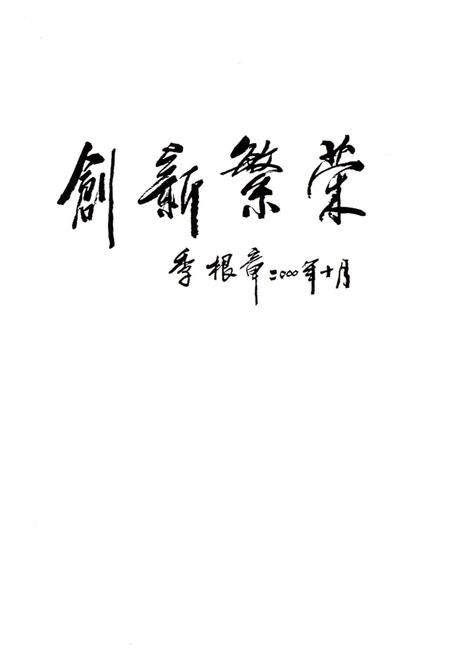 創新繁荣
季根章二〇〇〇年十月